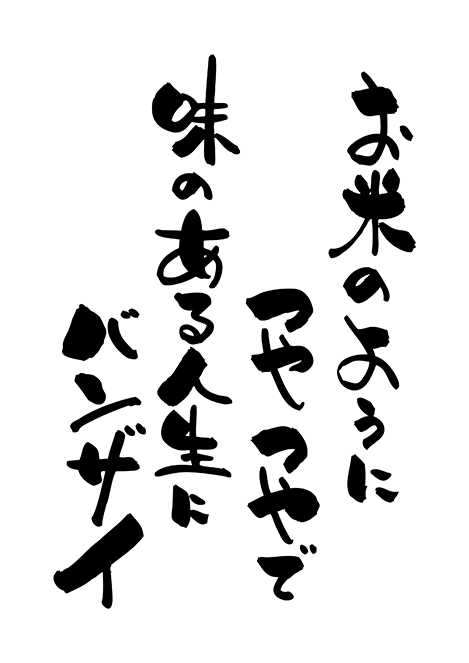 お米のように
つやつやで
味のある人生に
バンザイ